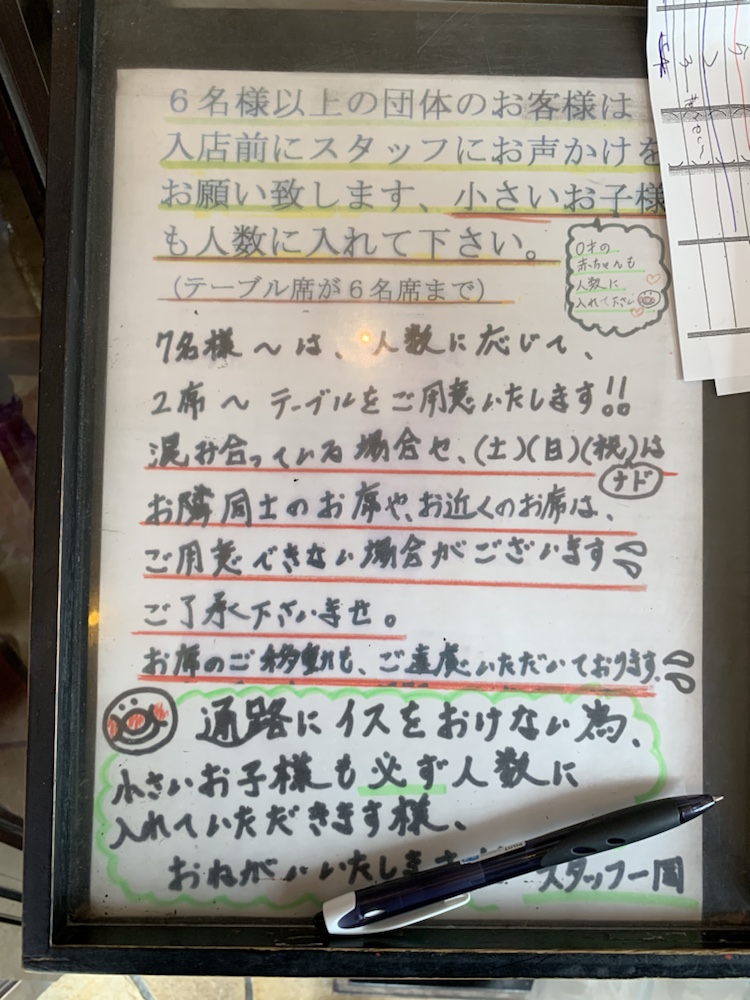 6名様以上の団体のお客様は
入店前にスタッフにお声かけを
お願い致します、小さいお子様
も人数に入れて下さい。
(テーブル席が6名席まで)
0才の
赤ちゃんも
人数に
入れて下さい
7名様〜は、人数に応じて、
2席〜テーブルをご用意いたします!!
混み合っている場合や、(土)(日)(祝)は
ナド
お隣同士のお席や、お近くのお席は、
ご用意できない場合がございます
ご了承下さいませ。
お席のご移動も、ご遠慮いただいております。
通路にイスをおけない為、
小さいお子様も必ず人数に
入れていただきます様、
おねがいいたします
スタッフ一同